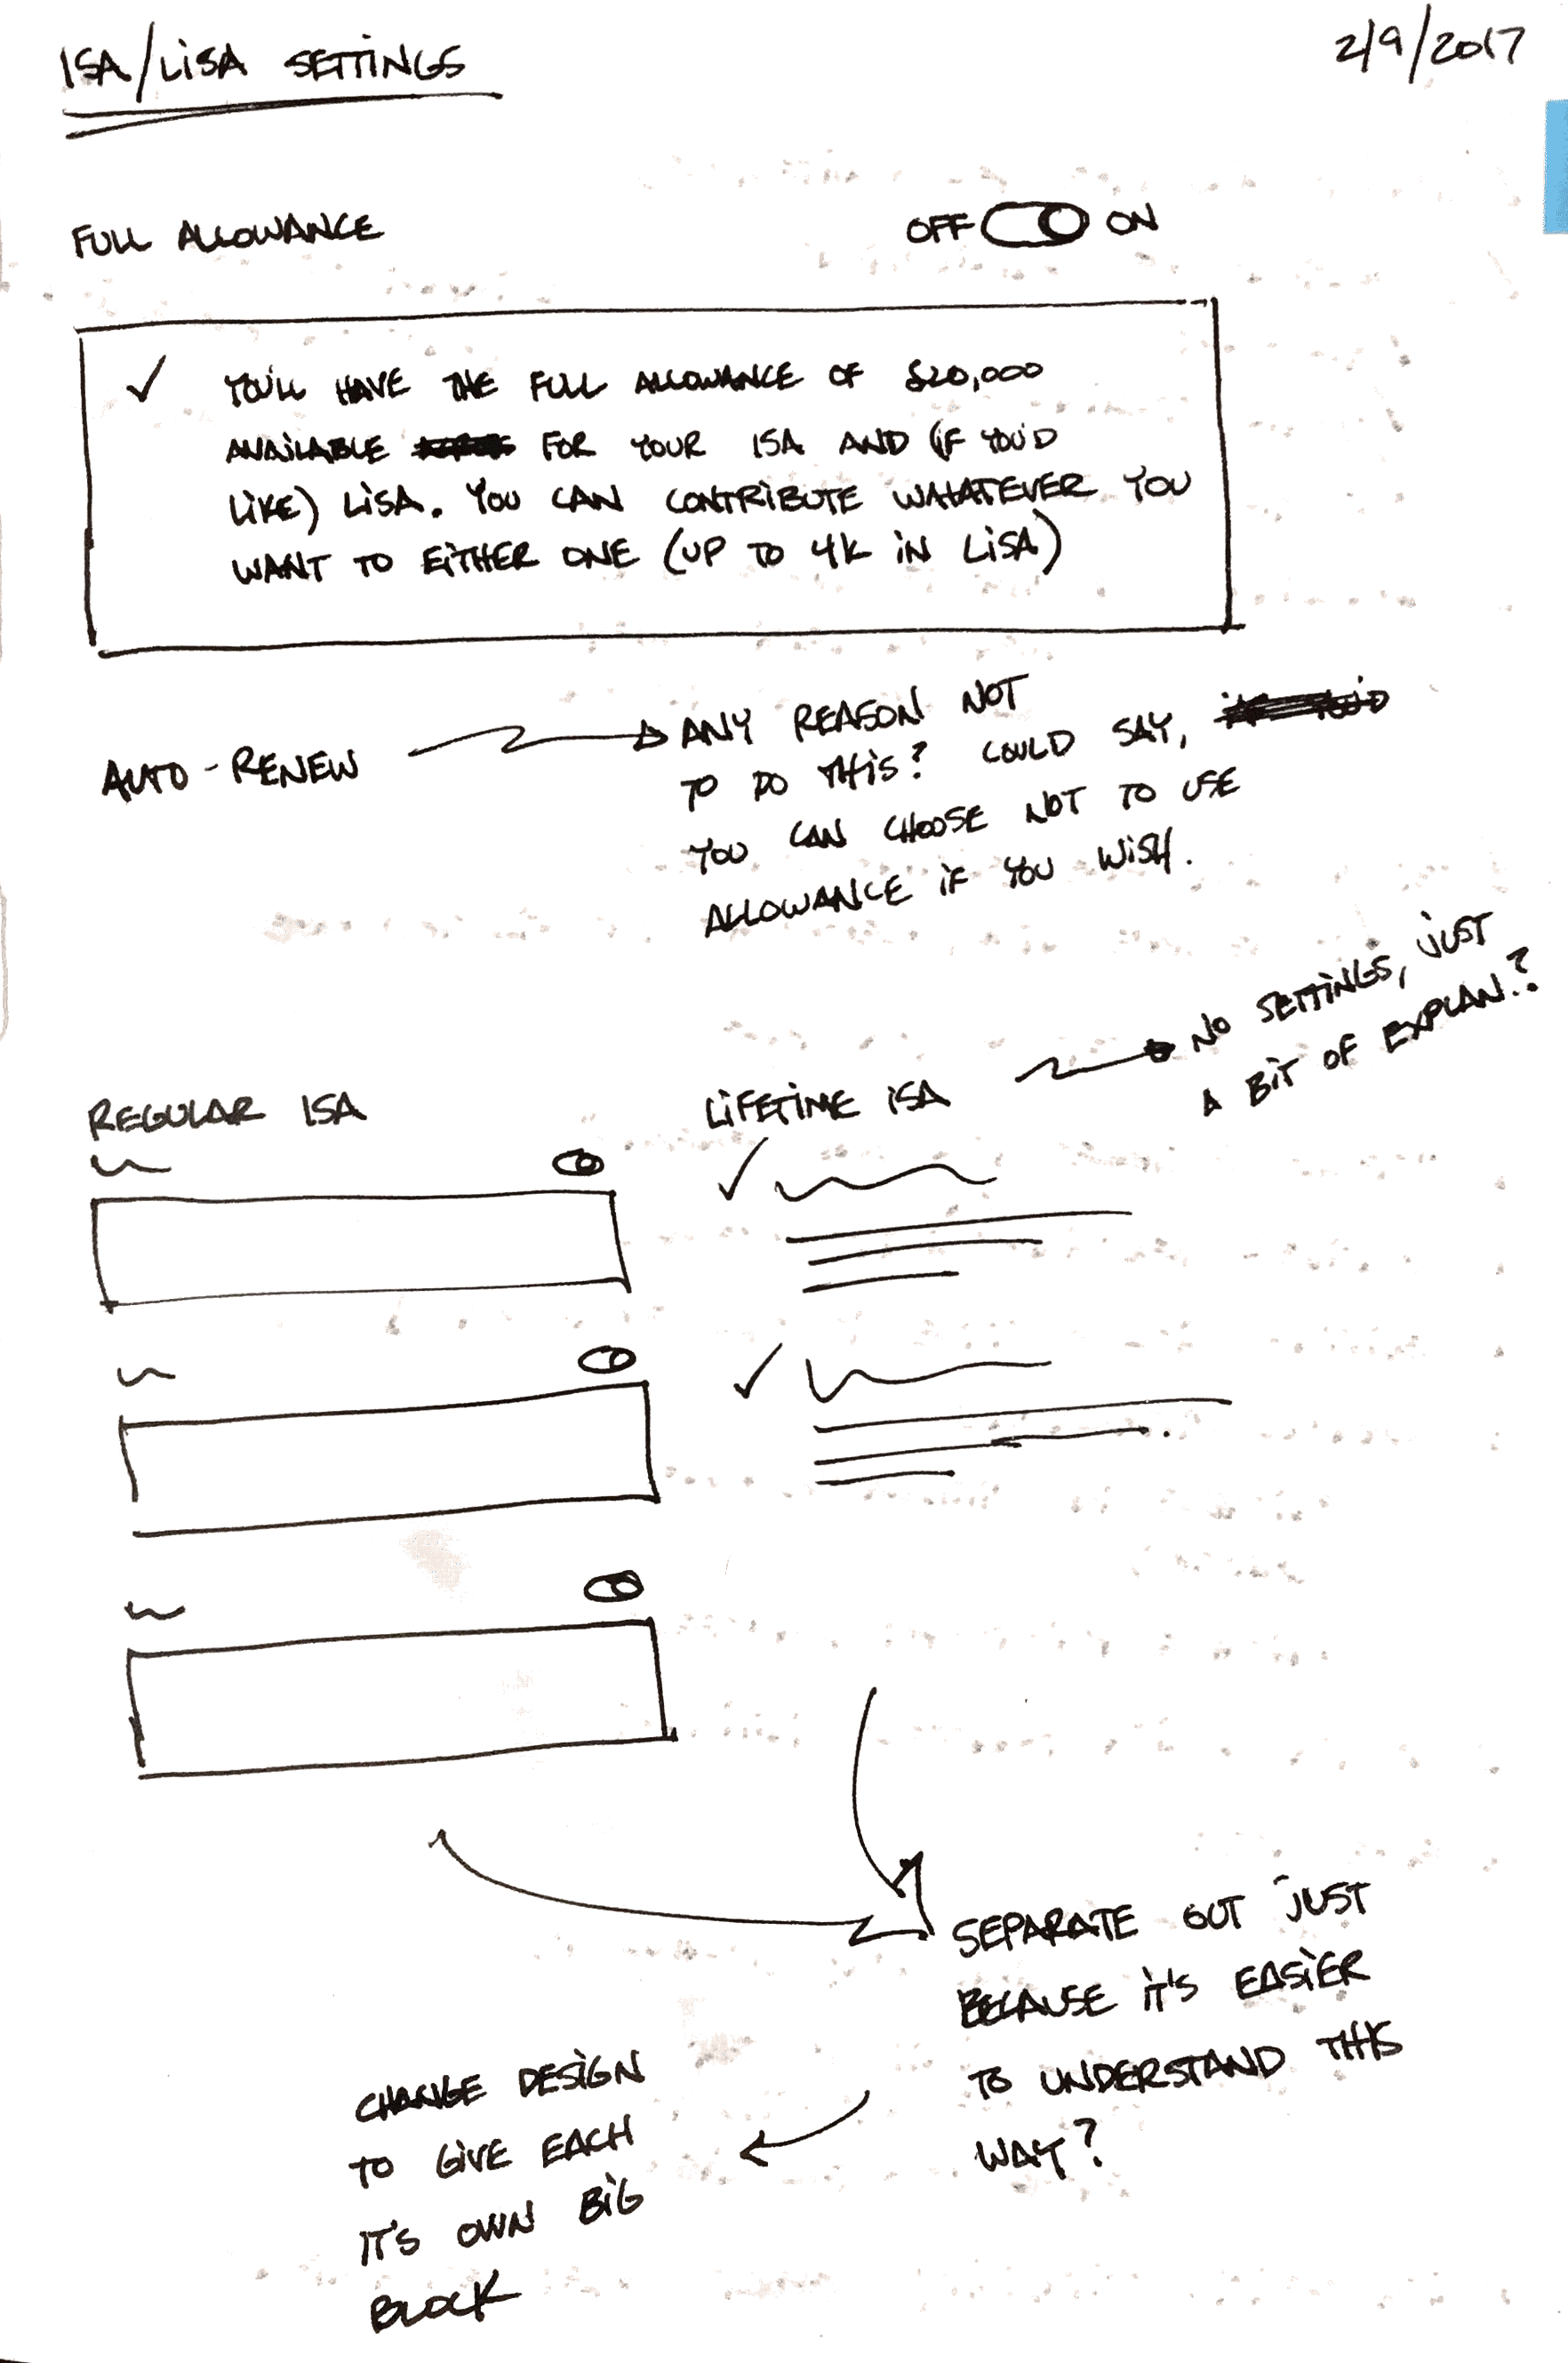 ISA/LISA SETTINGS
2/9/2017
FULL ALLOWANCE
OFF ON
YOU'LL HAVE THE FULL ALLOWANCE OF $20,000
AVAILABLE FOR YOUR ISA AND (IF YOU'D
LIKE) LISA. YOU CAN CONTRIBUTE WHATEVER YOU
WANT TO EITHER ONE (UP TO 4K IN LISA)
AUTO-RENEW
ANY REASON NOT
TO DO THIS? COULD SAY,
YOU CAN CHOOSE NOT TO USE
ALLOWANCE IF YOU WISH.
REGULAR ISA
LIFETIME ISA
NO SETTINGS, JUST
A BIT OF EXPLAN.?
SEPARATE OUT JUST
BECAUSE IT'S EASIER
TO UNDERSTAND THIS
WAY?
CHANGE DESIGN
TO GIVE EACH
IT'S OWN BIG
BLOCK